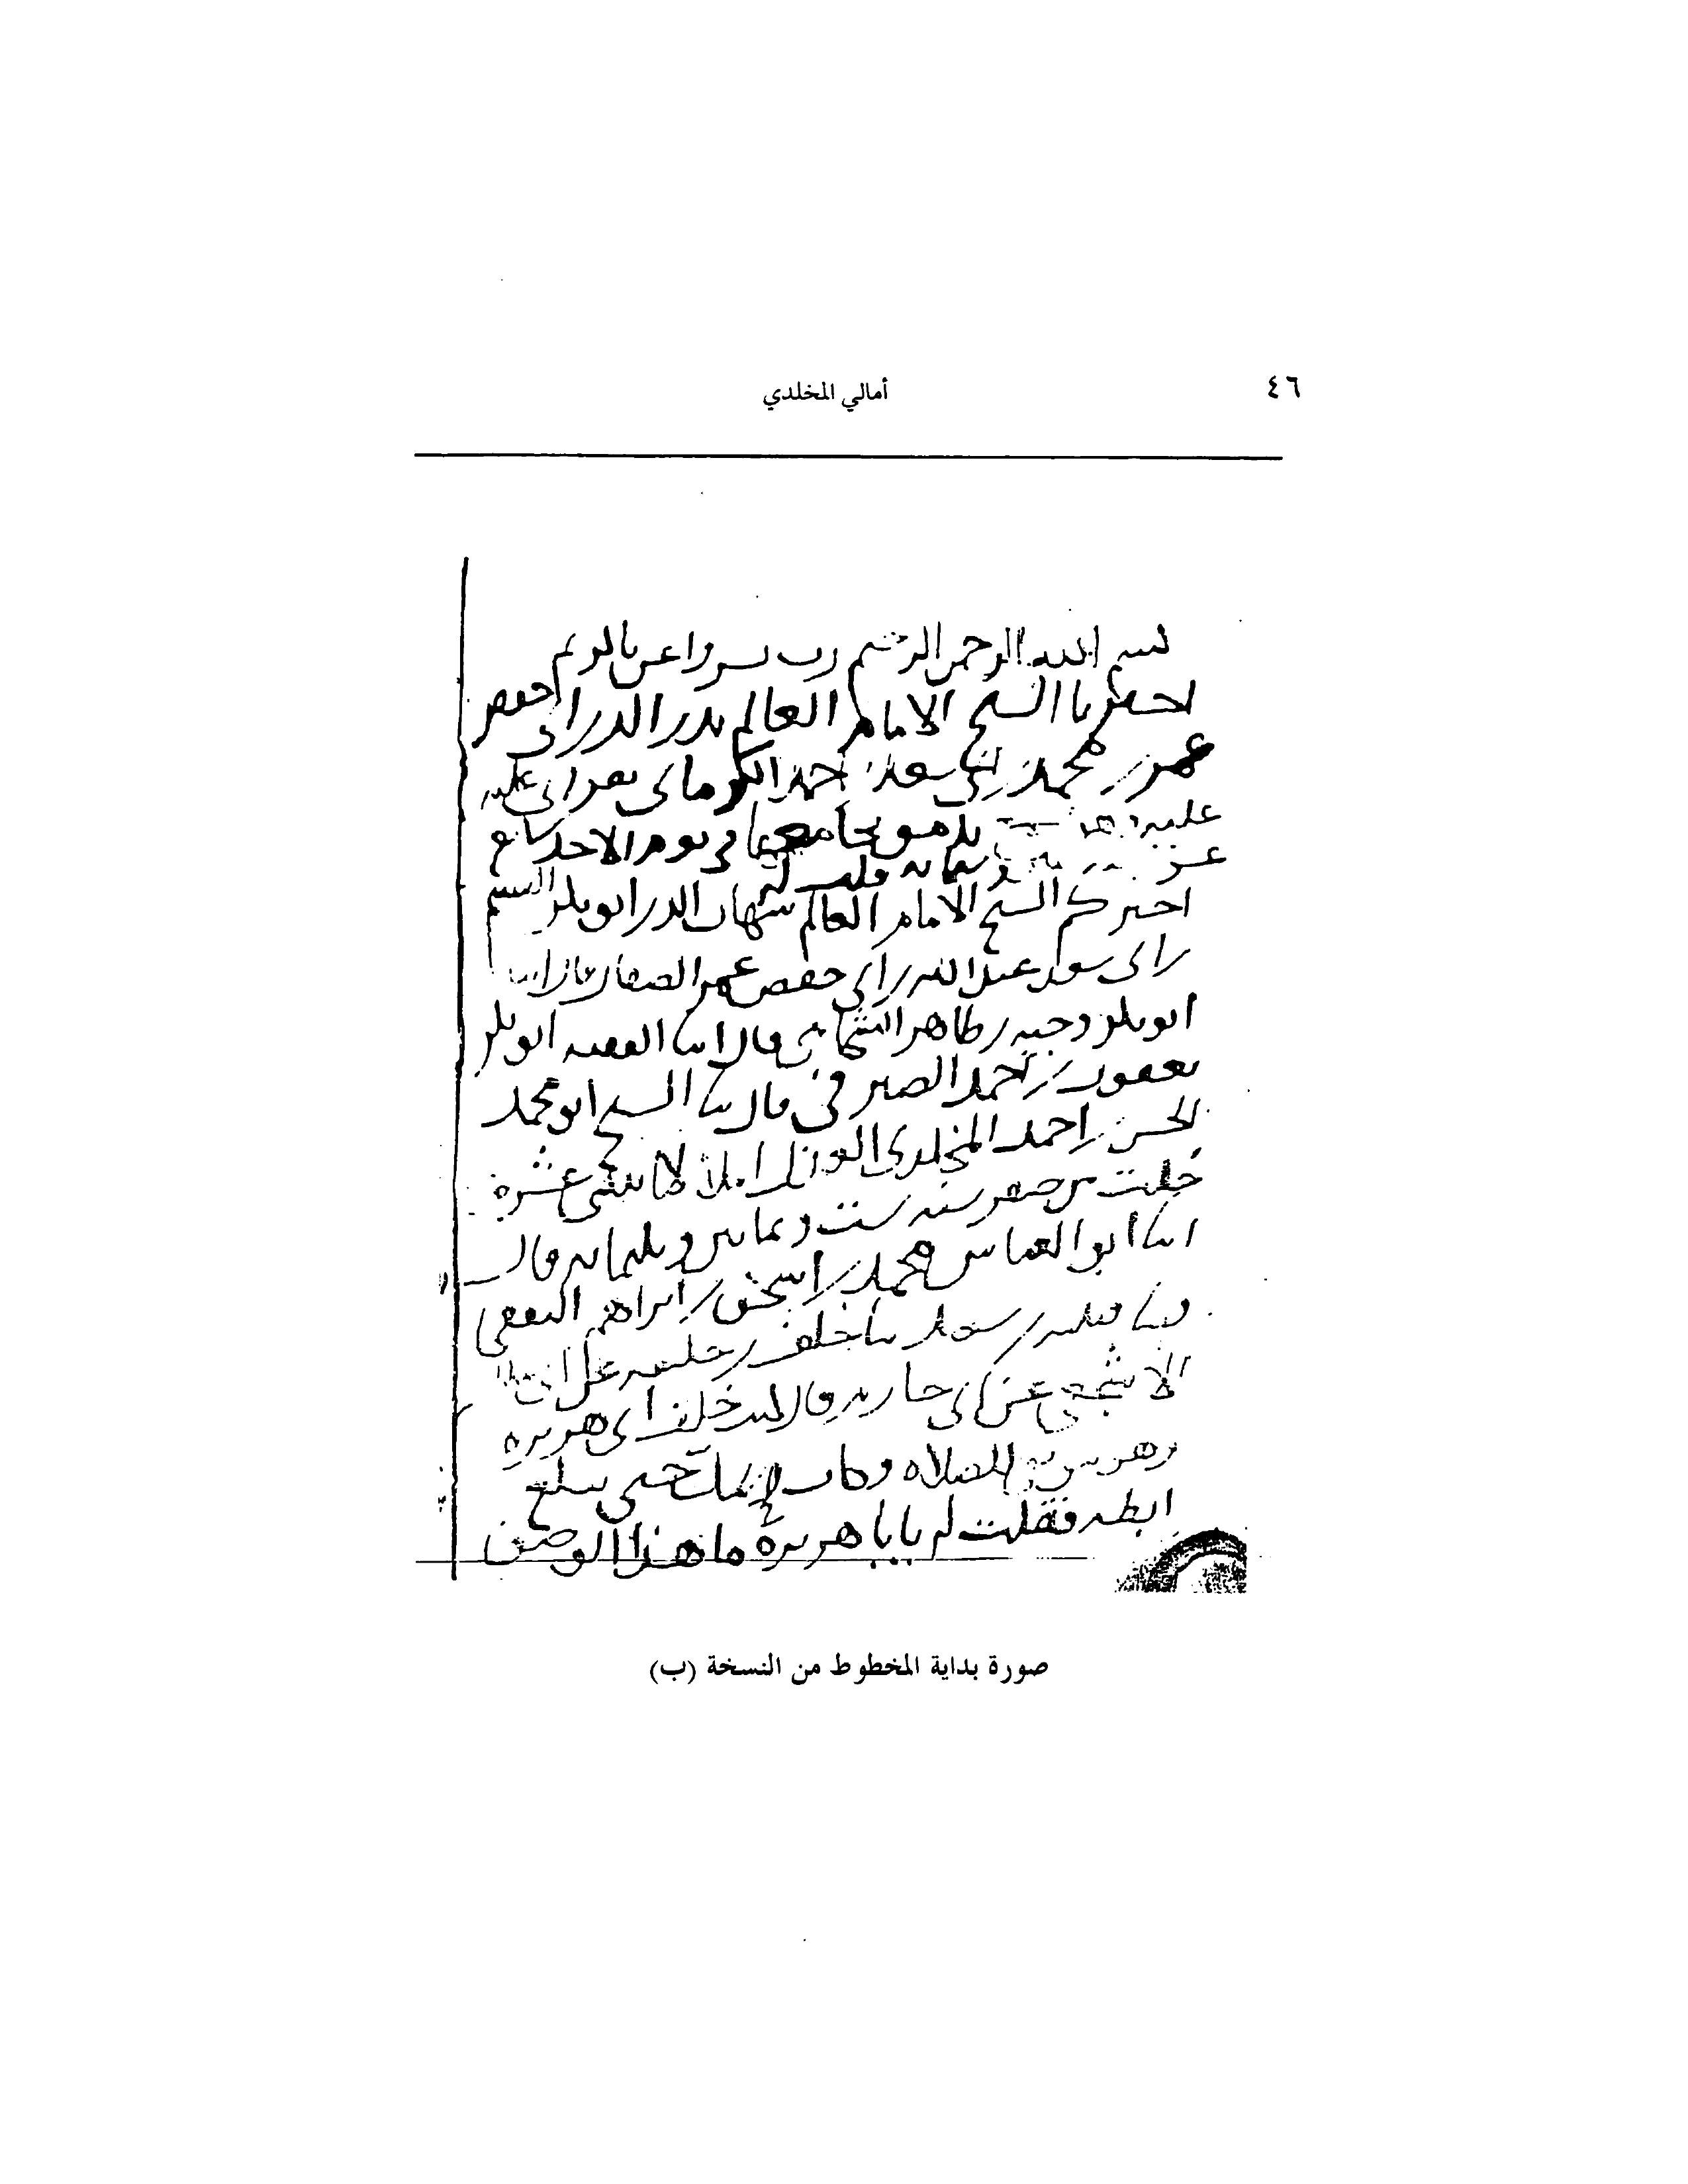 ٤٦
أمالي المخلدي
بسم الله الرحمن الرحيم رب يسر واعن يا كريم
اخبرنا الشيخ الامام العالم بدر الدين ابي حفص
عمر بن محمد بن ابي سعد بن احمد الكرماني بقراءتي عليه
عليه بدمشق بجامعها في يوم الاحد تاسع
وستمائة قلت له
اخبركم الشيخ الامام العالم شهاب الدين ابو بكر القسم
بن ابي سعد عبد الله بن ابي حفص عمر الصفار قال انا
ابو بكر وجيه بن طاهر الشحامي قال انا الفقيه ابو بكر
يعقوب بن احمد الصيرفي قال ثنا الشيخ ابو محمد
الحسن بن احمد المخلدي العدل املاء لاثنتي عشرة
خلت من صفر سنة ست وثمانين وثلثمائة قال
انا ابو العباس محمد بن اسحق بن ابراهيم الثقفي
ثنا قتيبة بن سعيد ثنا خلف بن خليفة عن ابي مالك
الاشجعي عن ابي حازم قال كنت خلف ابي هريرة
وهو يتوضا للصلاه وكان يمد يده حتى يبلغ
ابطه فقلت له يا ابا هريرة ما هذا الوضوء
صورة بداية المخطوط من النسخة (ب)